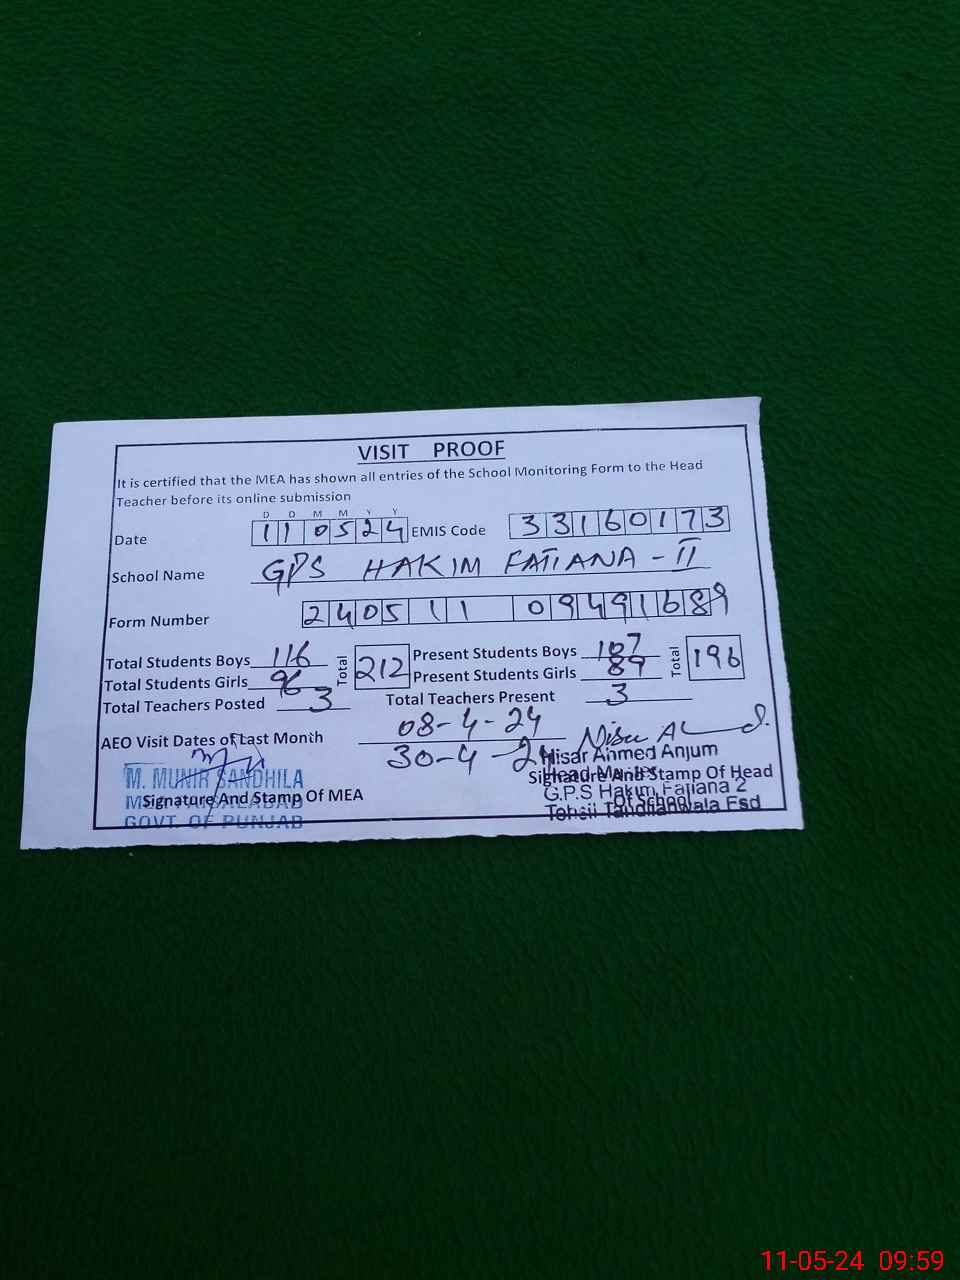 VISIT PROOF
It is certified that the MEA has shown all entries of the School Monitoring Form to the Head
Teacher before its online submission
D D M M Y Y
Date 110524 EMIS Code 33160173
School Name GPS HAKIM FATIANA - II
Form Number 240511 09491689
Total Students Boys 116 Total 212 Present Students Boys 107 Total 196
Total Students Girls 96 Present Students Girls 89
Total Teachers Posted 3 Total Teachers Present 3
AEO Visit Dates of Last Month 08-4-24
30-4-24
M. MUNIR SANDHILA
Signature And Stamp Of MEA
GOVT. OF PUNJAB
Nisar Ahmed Anjum
Head Master
Signature And Stamp Of Head
G.P.S Hakim Fatiana 2
Of School
Tehsil Tandlianwala Fsd
11-05-24 09:59